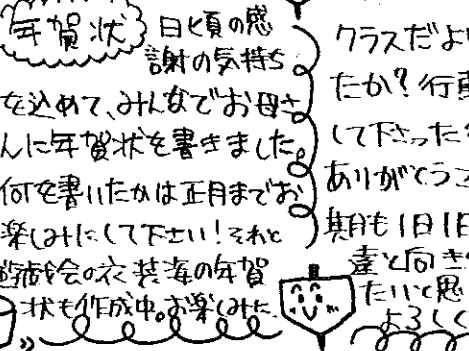 年賀状
日頃の感
謝の気持ち
を込めて、みんなでお母さ
んに年賀状を書きました。
何を書いたかは正月までお
楽しみにして下さい！それと
会の衣装姿の年賀
状も作成中。お楽しみに。
クラスだよ
たか？行
して下さった
ありがとうご
期も1日1日
と向き
たいと思
よろしく